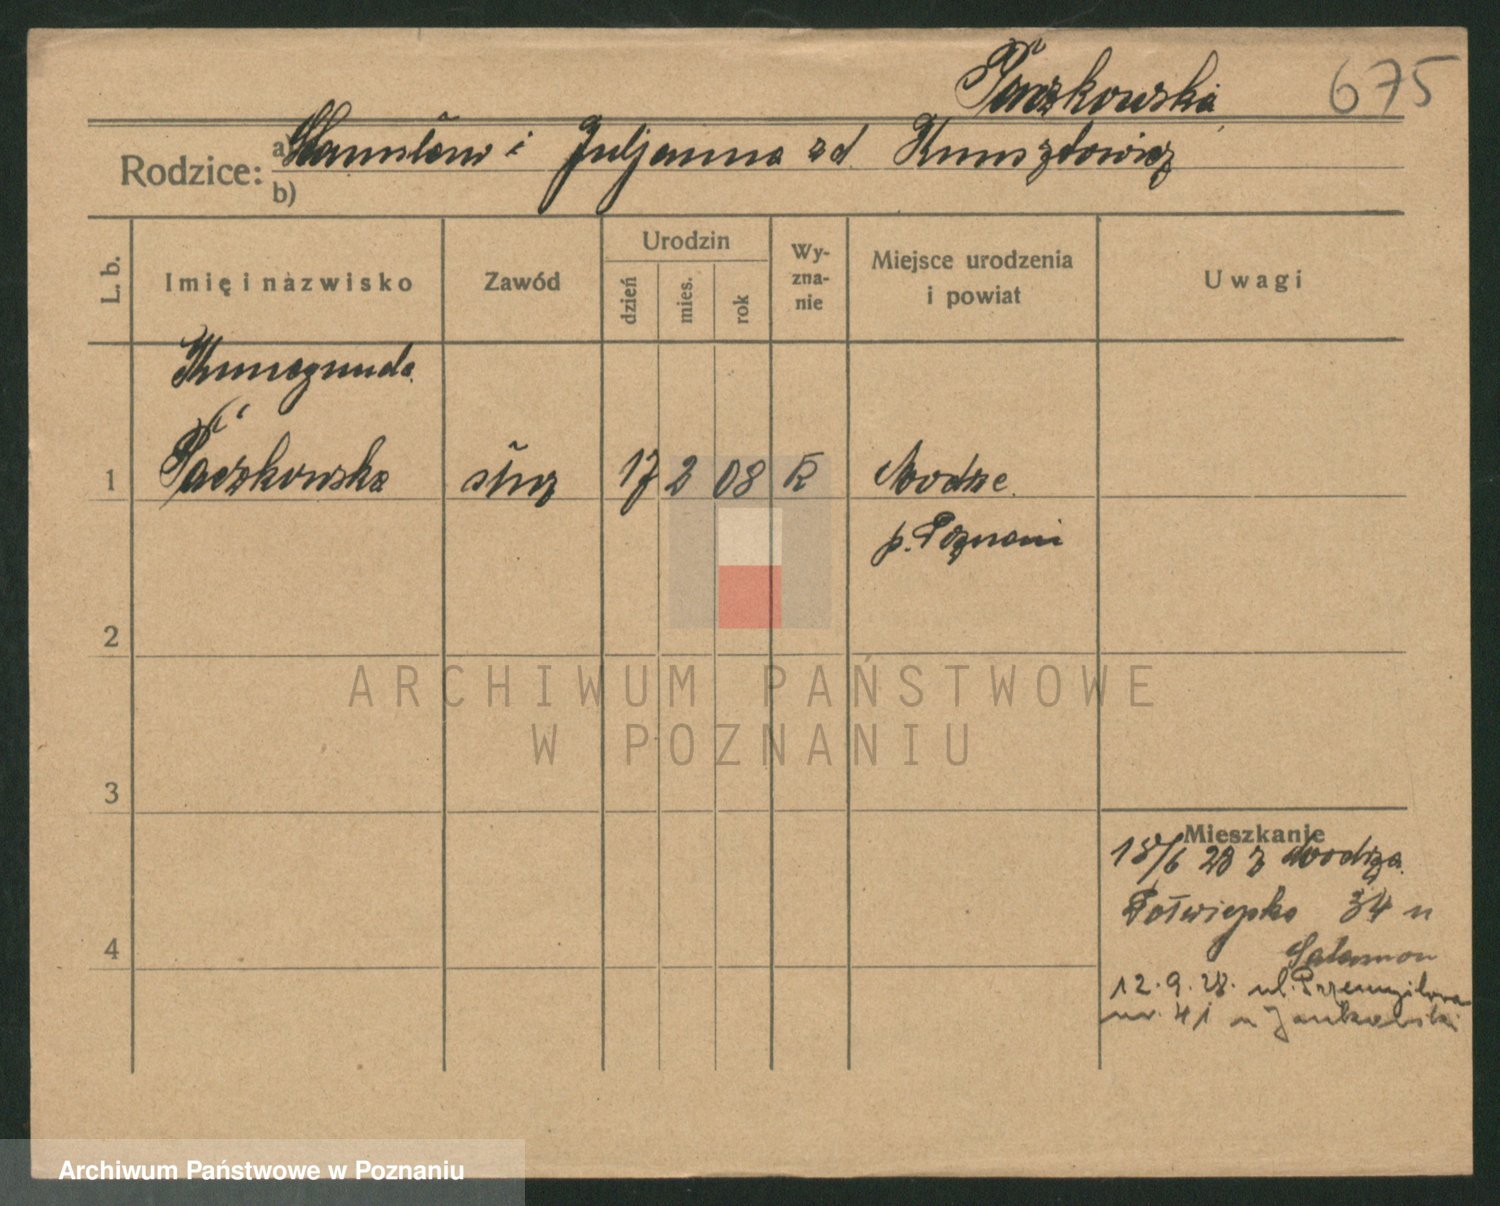 Paczkowska 675
Rodzice: a) Stanisław i Juljanna zd
b)
L. b.
Imię i nazwisko
Zawód
Urodzin
dzień
mies.
rok
Wy-
zna-
nie
Miejsce urodzenia
i powiat
Uwagi
Kunegunda
1 Paczkowska służ 17 2 08 K Modrze
p. Poznań
2
3
4
Mieszkanie
18/6 28 z Modrza
Półwiejska 34 u
Salamon
12.9.28. ul. Przemysłowa
nr. 41 u Jankowski
ARCHIWUM PAŃSTWOWE
W POZNANIU
Archiwum Państwowe w Poznaniu